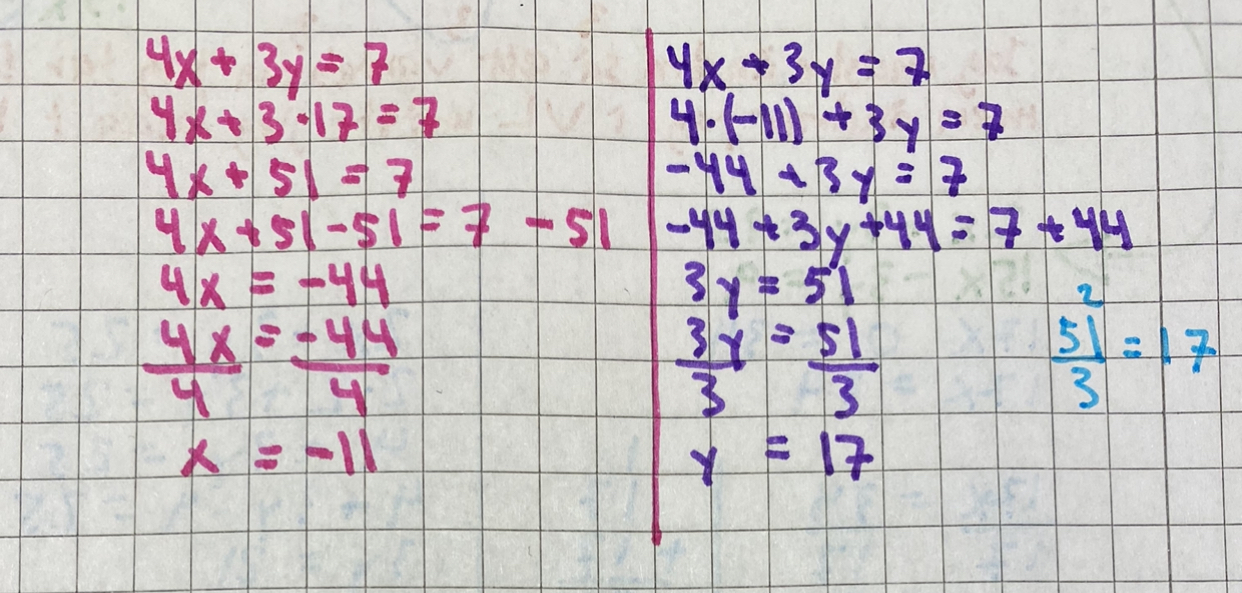 4x + 3y = 7
4x + 3·17 = 7
4x + 51 = 7
4x + 51 - 51 = 7 - 51
4x = -44
4x = -44
4 4
x = -11
4x + 3y = 7
4·(-11) + 3y = 7
-44 + 3y = 7
-44 + 3y + 44 = 7 + 44
3y = 51
3y = 51
3 3
y = 17
2
51 = 17
3